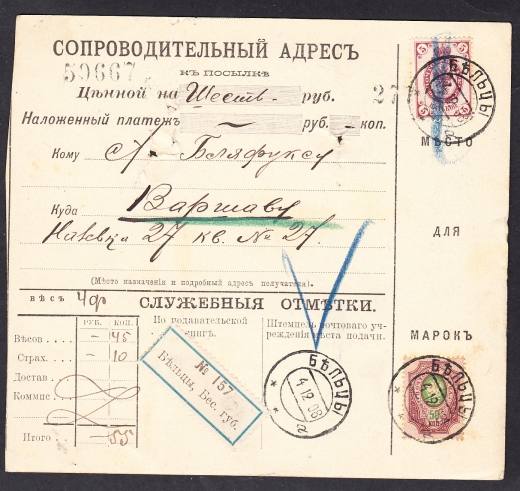 СОПРОВОДИТЕЛЬНЫЙ АДРЕСЪ
59667
КЪ ПОСЫЛКѢ
Цѣнной на Шесть руб.
Наложенный платежъ руб. коп.
Кому А. Беляфуксу
Куда Варшаву
27 кв. № 27.
(Мѣсто назначенія и подробный адресъ получателя).
5
5
БѢЛЬЦЫ
МѢСТО
ДЛЯ
МАРОКЪ
ВѢСЪ 4 ф
СЛУЖЕБНЫЯ ОТМѢТКИ.
РУБ. КОП.
Вѣсов. — 45
Страх. — 10
Достав.
Коммис.
Итого — 55
По подавательской книгѣ.
Штемпель почтоваго учрежденія мѣста подачи.
№ 157
Бѣльцы, Бес. губ.
БѢЛЬЦЫ
4 12 08
а
БѢЛЬЦЫ
4 12 08
50